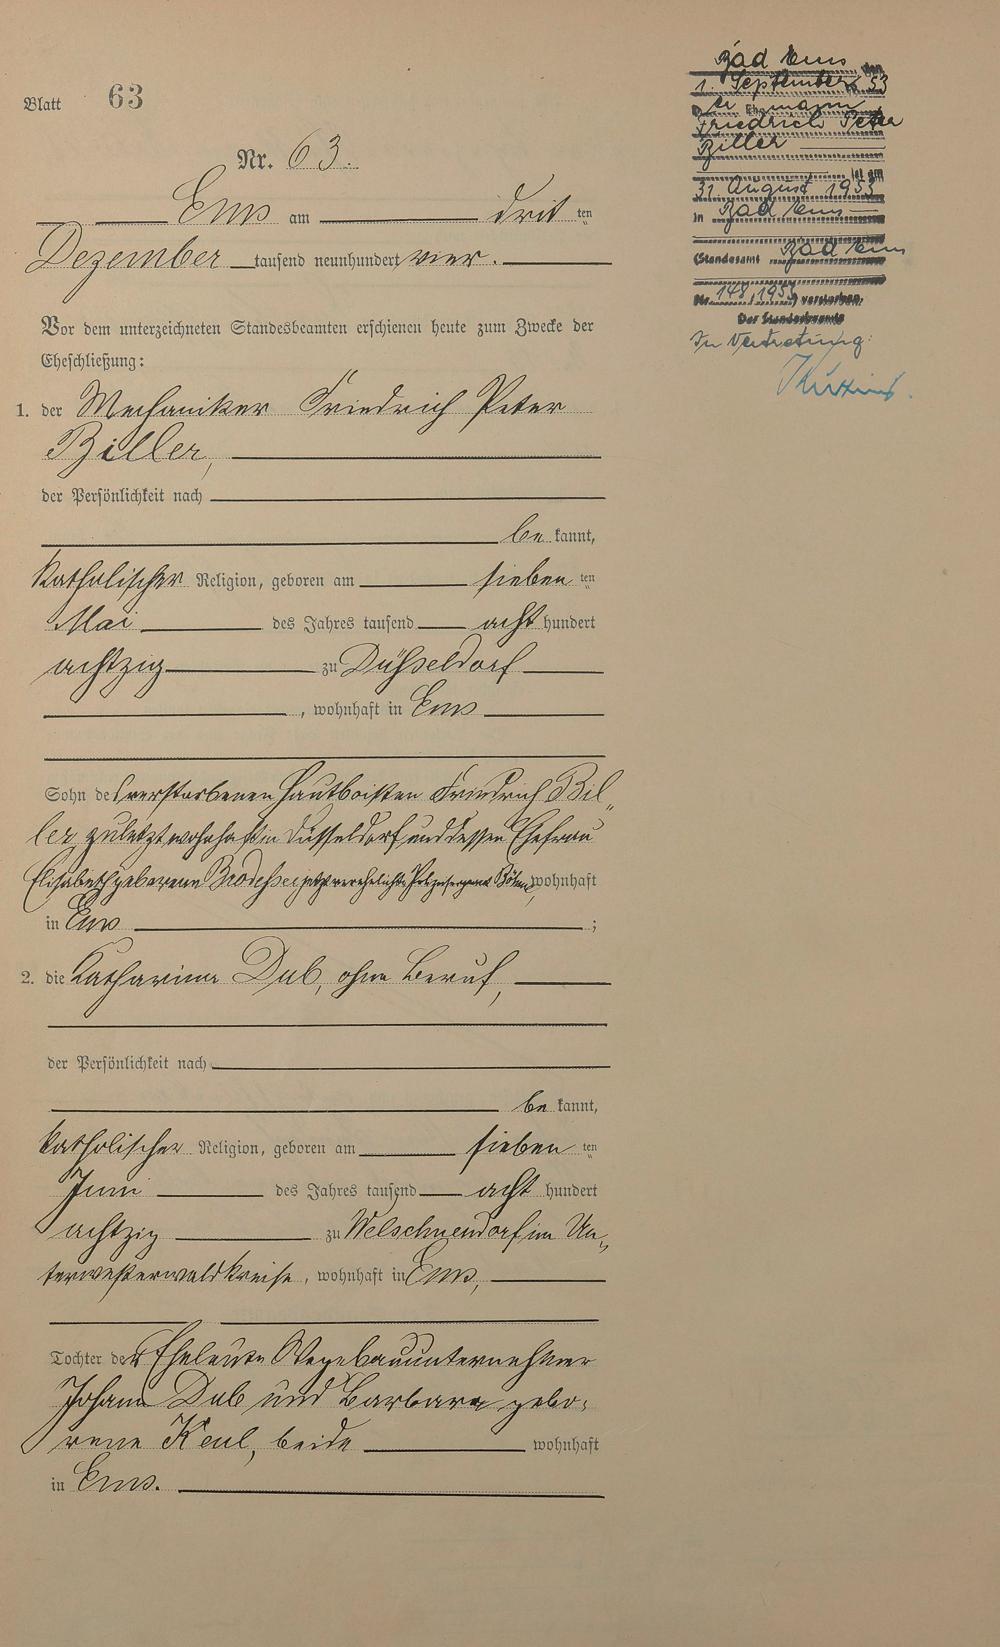 Blatt 63
Nr. 63.
Ems am dritten
Dezember tausend neunhundert vier.
Vor dem unterzeichneten Standesbeamten erschienen heute zum Zwecke der
Eheschließung:
1. der Mechaniker Friedrich Peter
Biller,
der Persönlichkeit nach
bekannt,
katholischer Religion, geboren am siebenten
Mai des Jahres tausend acht hundert
achtzig zu Düsseldorf
, wohnhaft in Ems
Sohn des verstorbenen Hautboisten Friedrich Bil„
ler, zuletzt wohnhaft in Düsseldorf und dessen Ehefrau
Elisabeth geborenen jetzt verehelichte Polizeisergeant wohnhaft
in Ems ;
2. die Katharina Dub, ohne Beruf,
der Persönlichkeit nach
bekannt,
katholischer Religion, geboren am siebenten
Juni des Jahres tausend acht hundert
achtzig zu Welschneudorf im Un„
terwesterwaldkreise, wohnhaft in Ems,
Tochter der Eheleute Wegebauunternehmer
Johann Dub und Barbara gebo„
rene Keul, beide wohnhaft
in Ems.
Bad Ems den
1. September 53
Der Ehemann
Friedrich Peter
Biller
ist am
31. August 1953
in Bad Ems
(Standesamt Bad Ems
Nr. 148/1953) verstorben.
Der Standesbeamte
In Vertretung: